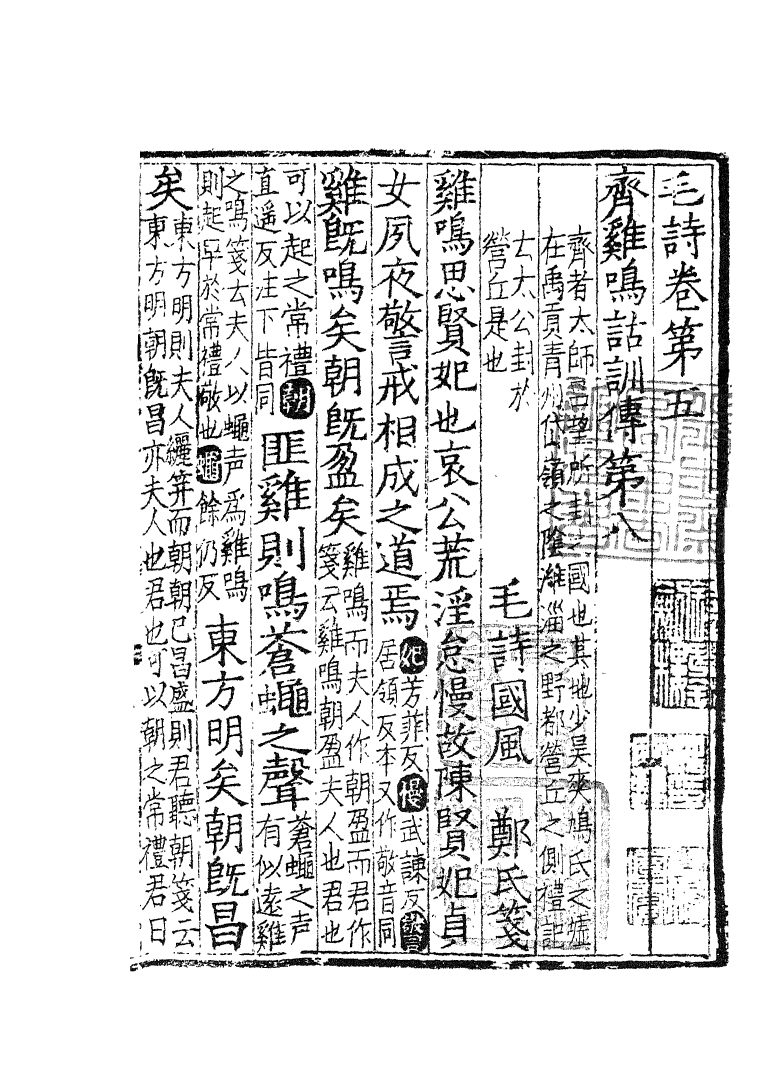 毛詩卷第五
齊雞鳴詁訓傳第八
齊者太師呂望所封之國也其地少昊爽鳩氏之墟
在禹貢青州岱嶺之陰濰淄之野都營丘之側禮記
云太公封於
營丘是也
毛詩國風 鄭氏箋
雞鳴思賢妃也哀公荒淫怠慢故陳賢妃貞
女夙夜警戒相成之道焉
妃芳菲反慢武諫反警
居領反本又作敬音同
雞旣鳴矣朝旣盈矣
雞鳴而夫人作朝盈而君作
箋云雞鳴朝盈夫人也君也
可以起之常禮朝
直遥反注下皆同
匪雞則鳴蒼蠅之聲
蒼蠅之声
有似遠雞
之鳴箋云夫人以蠅声爲雞鳴
則起早於常禮敬也蠅餘仍反
東方明矣朝旣昌
矣
東方明則夫人纚筓而朝朝已昌盛則君聽朝箋云
東方明朝旣昌亦夫人也君也可以朝之常禮君日